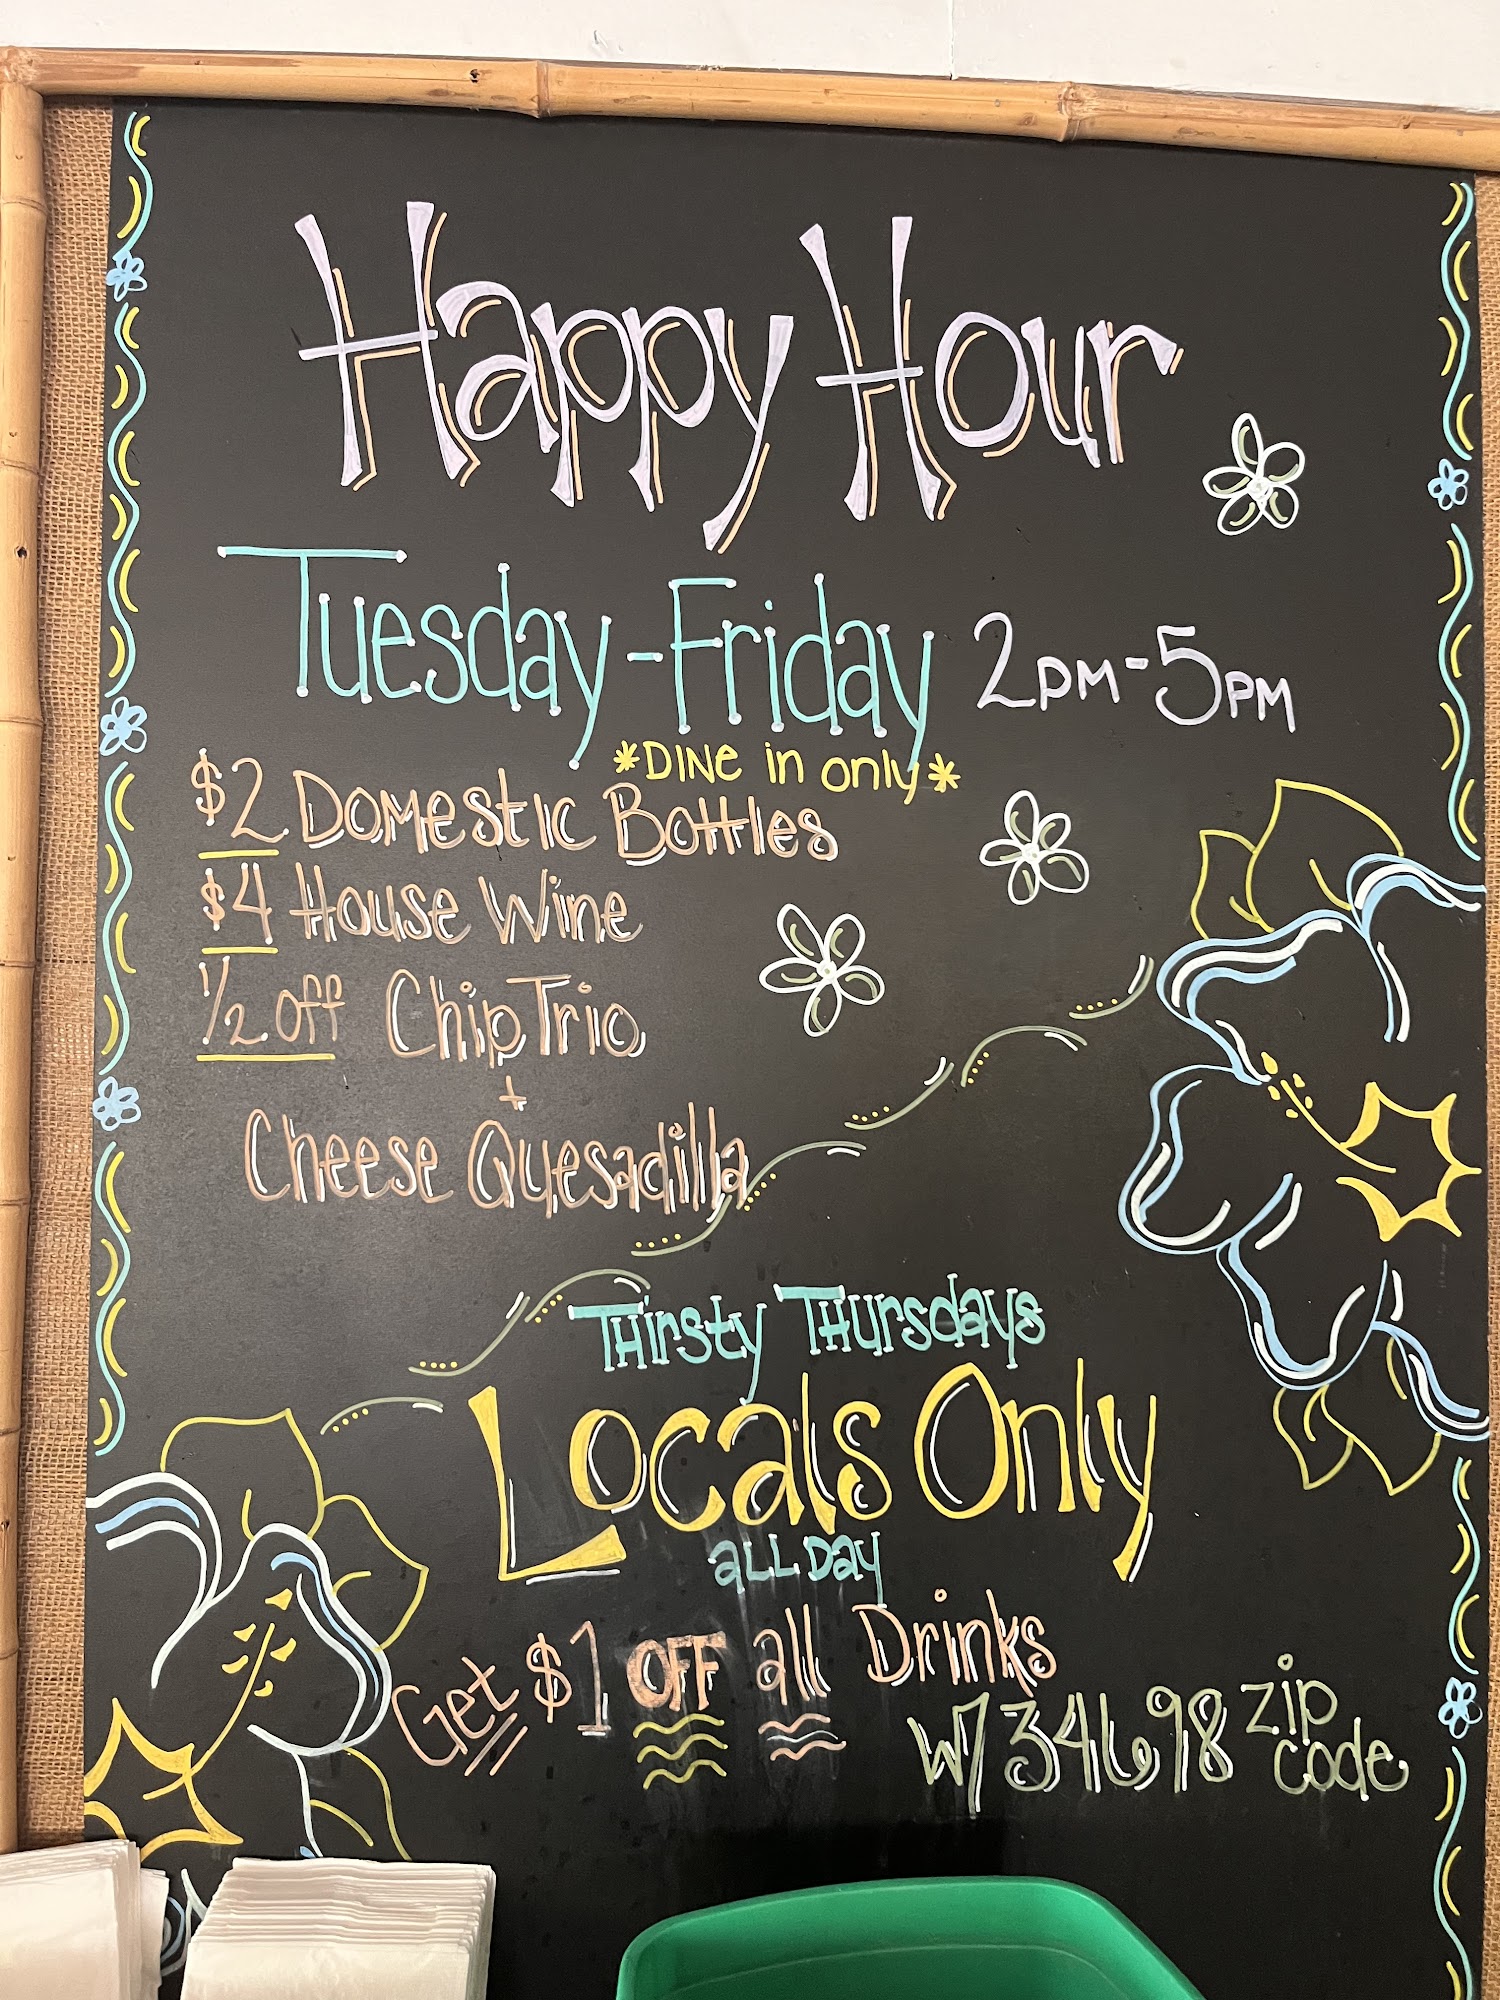 Happy Hour
Tuesday-Friday 2PM-5PM
*DINE in only*
$2 Domestic Bottles
$4 House Wine
1/2 off Chip Trio
+
Cheese Quesadilla
Thirsty Thursdays
Locals Only
all Day
Get $1 OFF all Drinks
W/ 34698 zip
code